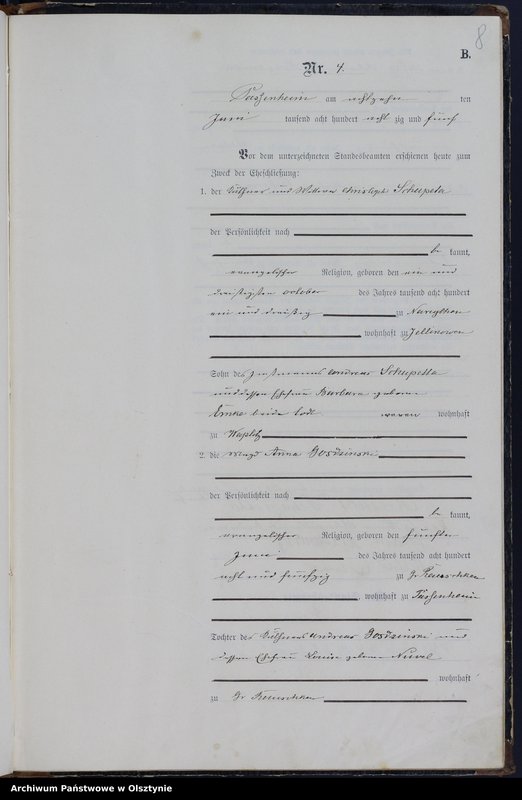 8
B.
Nr. 4.
Passenheim am achtzehn ten
Juni tausend acht hundert acht zig und fünf
Vor dem unterzeichneten Standesbeamten erschienen heute zum
Zweck der Eheschließung:
1. der und Wittwer Christoph Schupetta
der Persönlichkeit nach
be kannt,
evangelischer Religion, geboren den ein und
dreißigsten October des Jahres tausend acht hundert
ein und dreißig zu
wohnhaft zu Jellinowen
Sohn des Andreas Schupetta
und dessen Ehefrau Barbara geborne
beide todt waren wohnhaft
zu Waplitz
2. die Magd Anna
der Persönlichkeit nach
be kannt,
evangelischer Religion, geboren den fünften
Juni des Jahres tausend acht hundert
acht und fünfzig zu Gr
wohnhaft zu Passenheim
Tochter des Andreas und
dessen Ehefrau Louise geborne
wohnhaft
zu Gr
Archiwum Państwowe w Olsztynie